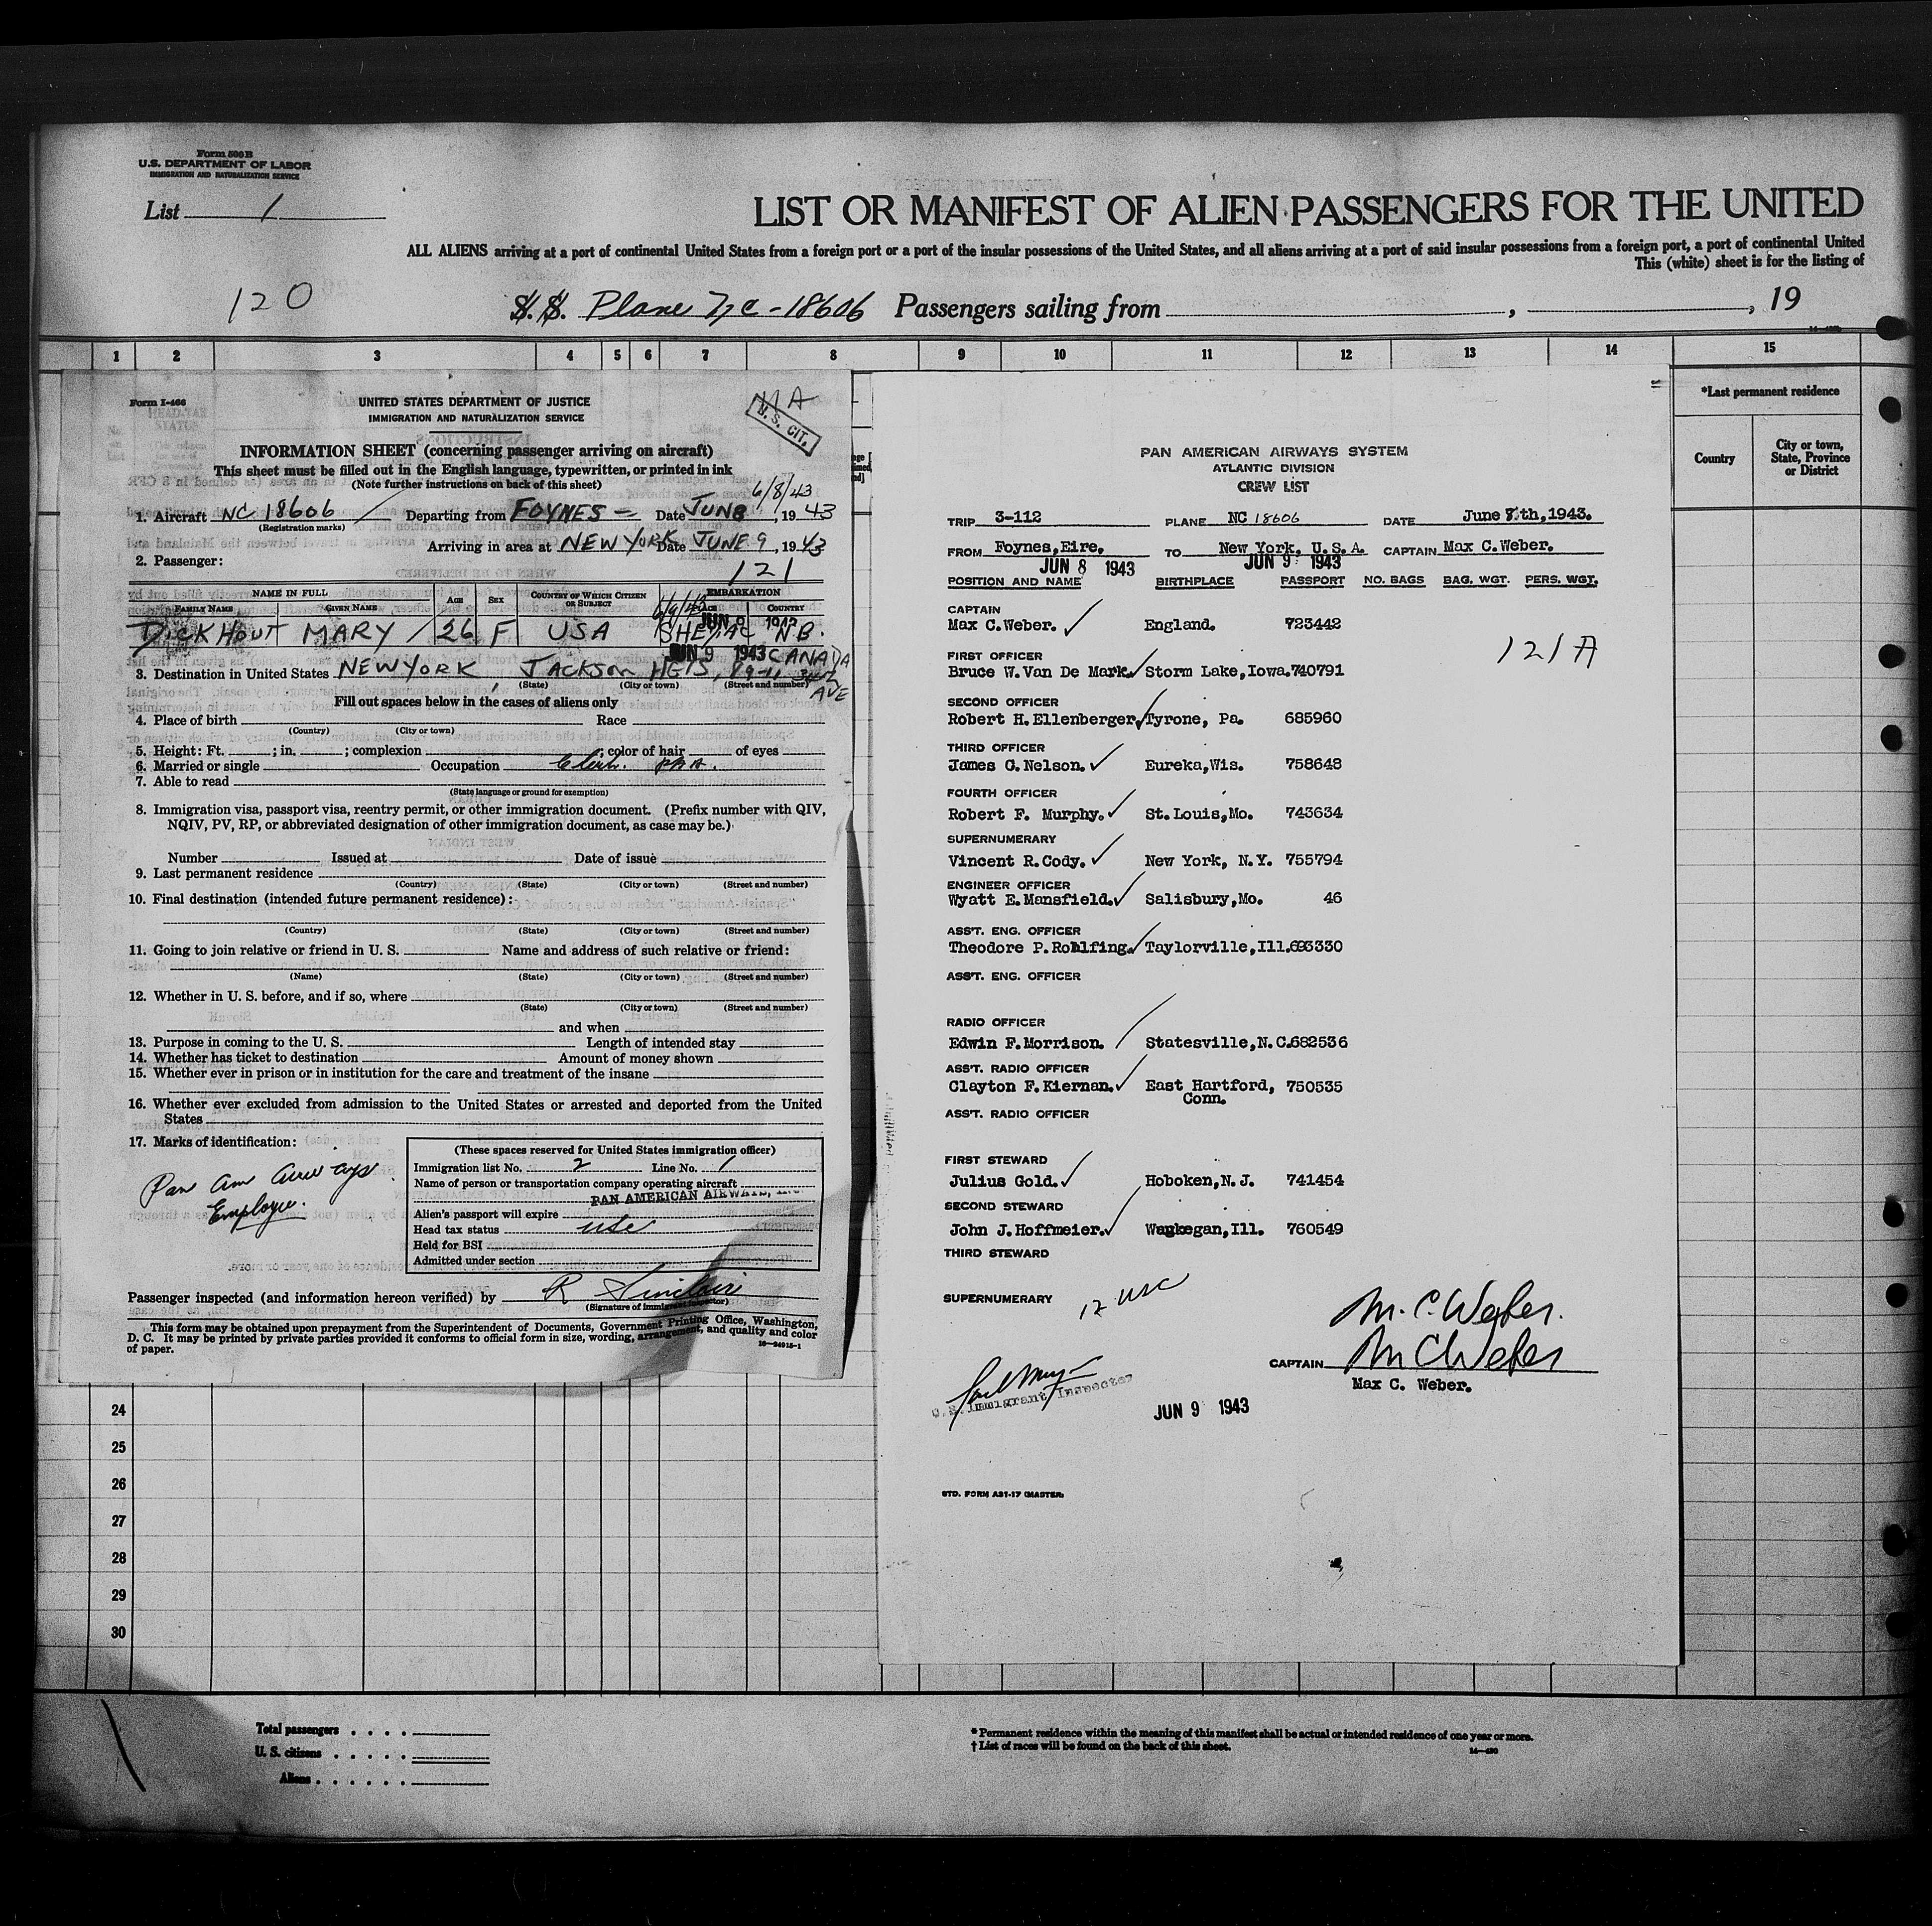 Form 500B
U.S. DEPARTMENT OF LABOR
IMMIGRATION AND NATURALIZATION SERVICE
List 1
LIST OR MANIFEST OF ALIEN PASSENGERS FOR THE UNITED
ALL ALIENS arriving at a port of continental United States from a foreign port or a port of the insular possessions of the United States, and all aliens arriving at a port of said insular possessions from a foreign port, a port of continental United
This (white) sheet is for the listing of
120
S.S. Plane NC-18606 Passengers sailing from , , 19
1 2 3 4 5 6 7 8 9 10 11 12 13 14 15
*Last permanent residence
Country
City or town, State, Province or District
Form I-466
UNITED STATES DEPARTMENT OF JUSTICE
IMMIGRATION AND NATURALIZATION SERVICE
U.S. CIT.
INFORMATION SHEET (concerning passenger arriving on aircraft)
This sheet must be filled out in the English language, typewritten, or printed in ink
(Note further instructions on back of this sheet)
6/8/43
1. Aircraft NC 18606 Departing from FOYNES — Date JUNE 8, 1943
(Registration marks)
Arriving in area at NEW YORK Date JUNE 9, 1943
2. Passenger:
121
NAME IN FULL
FAMILY NAME GIVEN NAME
AGE SEX COUNTRY OF WHICH CITIZEN OR SUBJECT
EMBARKATION
PLACE COUNTRY
DICKHOUT MARY 26 F USA SHEDIAC N.B.
JUN 9 1943 CANADA
3. Destination in United States NEW YORK JACKSON HGTS, 89-11 34th AVE
(State) (City or town) (Street and number)
Fill out spaces below in the cases of aliens only
4. Place of birth Race
(Country) (City or town)
5. Height: Ft. ; in. ; complexion ; color of hair of eyes
6. Married or single Occupation Clerk. PAA.
7. Able to read
(State language or ground for exemption)
8. Immigration visa, passport visa, reentry permit, or other immigration document. (Prefix number with QIV,
NQIV, PV, RP, or abbreviated designation of other immigration document, as case may be.)
Number Issued at Date of issue
9. Last permanent residence
(Country) (State) (City or town) (Street and number)
10. Final destination (intended future permanent residence):
(Country) (State) (City or town) (Street and number)
11. Going to join relative or friend in U. S. Name and address of such relative or friend:
(Name) (State) (City or town) (Street and number)
12. Whether in U. S. before, and if so, where
(State) (City or town) (Street and number)
and when
13. Purpose in coming to the U. S. Length of intended stay
14. Whether has ticket to destination Amount of money shown
15. Whether ever in prison or in institution for the care and treatment of the insane
16. Whether ever excluded from admission to the United States or arrested and deported from the United
States
17. Marks of identification:
Pan Am Airways
Employee.
(These spaces reserved for United States immigration officer)
Immigration list No. 2 Line No. 1
Name of person or transportation company operating aircraft
PAN AMERICAN AIRWAYS, INC.
Alien's passport will expire
Head tax status USC
Held for BSI
Admitted under section
Passenger inspected (and information hereon verified) by R Sinclair
(Signature of Immigrant Inspector)
This form may be obtained upon prepayment from the Superintendent of Documents, Government Printing Office, Washington,
D. C. It may be printed by private parties provided it conforms to official form in size, wording, arrangement, and quality and color
of paper.
16—24915-1
PAN AMERICAN AIRWAYS SYSTEM
ATLANTIC DIVISION
CREW LIST
TRIP 3-112 PLANE NC 18606 DATE June 8th,1943.
FROM Foynes,Eire. TO New York, U.S.A. CAPTAIN Max C.Weber.
JUN 8 1943 JUN 9 1943
POSITION AND NAME BIRTHPLACE PASSPORT NO. BAGS BAG. WGT. PERS. WGT.
CAPTAIN
Max C.Weber. England. 723442
121A
FIRST OFFICER
Bruce W.Van De Mark. Storm Lake,Iowa.740791
SECOND OFFICER
Robert H.Ellenberger. Tyrone, Pa. 685960
THIRD OFFICER
James C.Nelson. Eureka,Wis. 758648
FOURTH OFFICER
Robert F. Murphy. St.Louis,Mo. 743634
SUPERNUMERARY
Vincent R.Cody. New York, N.Y. 755794
ENGINEER OFFICER
Wyatt E.Mansfield. Salisbury,Mo. 46
ASS'T. ENG. OFFICER
Theodore P.Rohlfing. Taylorville,Ill.693330
ASS'T. ENG. OFFICER
RADIO OFFICER
Edwin F.Morrison. Statesville,N.C.682536
ASS'T. RADIO OFFICER
Clayton F.Kiernan. East Hartford, 750535
Conn.
ASS'T. RADIO OFFICER
FIRST STEWARD
Julius Gold. Hoboken,N.J. 741454
SECOND STEWARD
John J.Hoffmeier. Waukegan,Ill. 760549
THIRD STEWARD
SUPERNUMERARY 12 USC
M. C. Weber.
CAPTAIN M C Weber
Max C. Weber.
U.S. Immigrant Inspector
JUN 9 1943
STD. FORM A31-17 (MASTER)
24
25
26
27
28
29
30
Total passengers
U. S. citizens
Aliens
* Permanent residence within the meaning of this manifest shall be actual or intended residence of one year or more.
† List of races will be found on the back of this sheet.